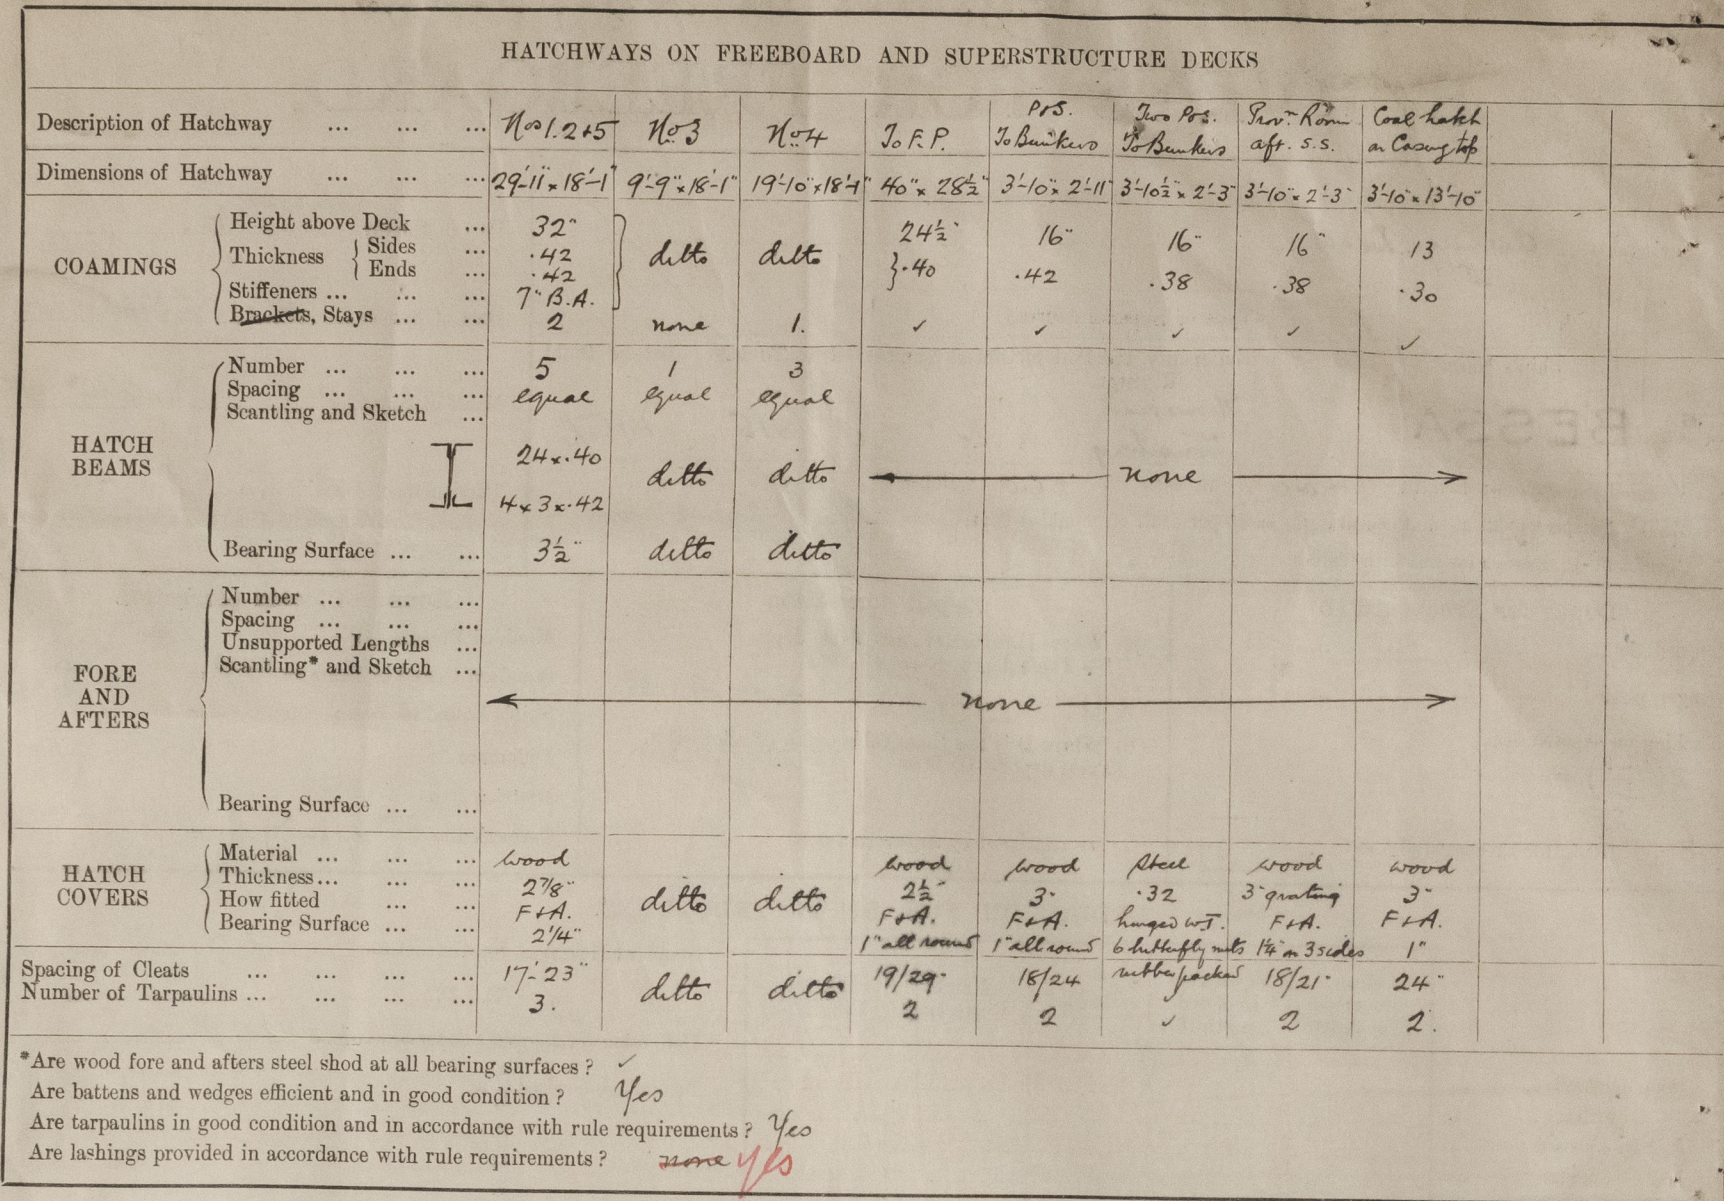 HATCHWAYS ON FREEBOARD AND SUPERSTRUCTURE DECKS
Description of Hatchway ... ... ... Nos 1.2+5 No. 3 No. 4 To F.P. P&S. To Bunkers Two P&S. To Bunkers Provn. Room aft. S.S. Coal hatch on Casing top
Dimensions of Hatchway ... ... ... 29'-11" × 18'-1" 9'-9" × 18'-1" 19'-10" × 18'-1" 40" × 28½" 3'-10" × 2'-11" 3'-10½" × 2'-3" 3'-10" × 2'-3" 3'-10" × 13'-10"
COAMINGS
Height above Deck ... 32" ditto ditto 24½" 16" 16" 16" 13
Thickness { Sides ... .42 } .40 .42 .38 .38 .30
Ends ... .42
Stiffeners ... ... ... 7" B.A.
Brackets, Stays ... ... 2 none 1. ✓ ✓ ✓ ✓ ✓
HATCH BEAMS
Number ... ... ... 5 1 3
Spacing ... ... ... equal equal equal
Scantling and Sketch ...
24 × .40 ditto ditto none
4 × 3 × .42
Bearing Surface ... ... 3½" ditto ditto
FORE AND AFTERS
Number ... ... ...
Spacing ... ... ...
Unsupported Lengths ...
Scantling* and Sketch ...
none
Bearing Surface ... ...
HATCH COVERS
Material ... ... ... wood ditto ditto wood wood steel wood wood
Thickness... ... ... 2⅞" 2½" 3" .32 3" grating 3"
How fitted ... ... F+A. F+A. F+A. hinged W.T. F+A. F+A.
Bearing Surface ... ... 2¼" 1" all round 1" all round 6 butterfly nuts 1¼" on 3 sides 1"
rubber packed
Spacing of Cleats ... ... ... ... 17"-23" ditto ditto 19/29" 18/24 18/21" 24"
Number of Tarpaulins ... ... ... ... 3. 2 2 ✓ 2 2.
*Are wood fore and afters steel shod at all bearing surfaces? ✓
Are battens and wedges efficient and in good condition? Yes
Are tarpaulins in good condition and in accordance with rule requirements? Yes
Are lashings provided in accordance with rule requirements? none yes